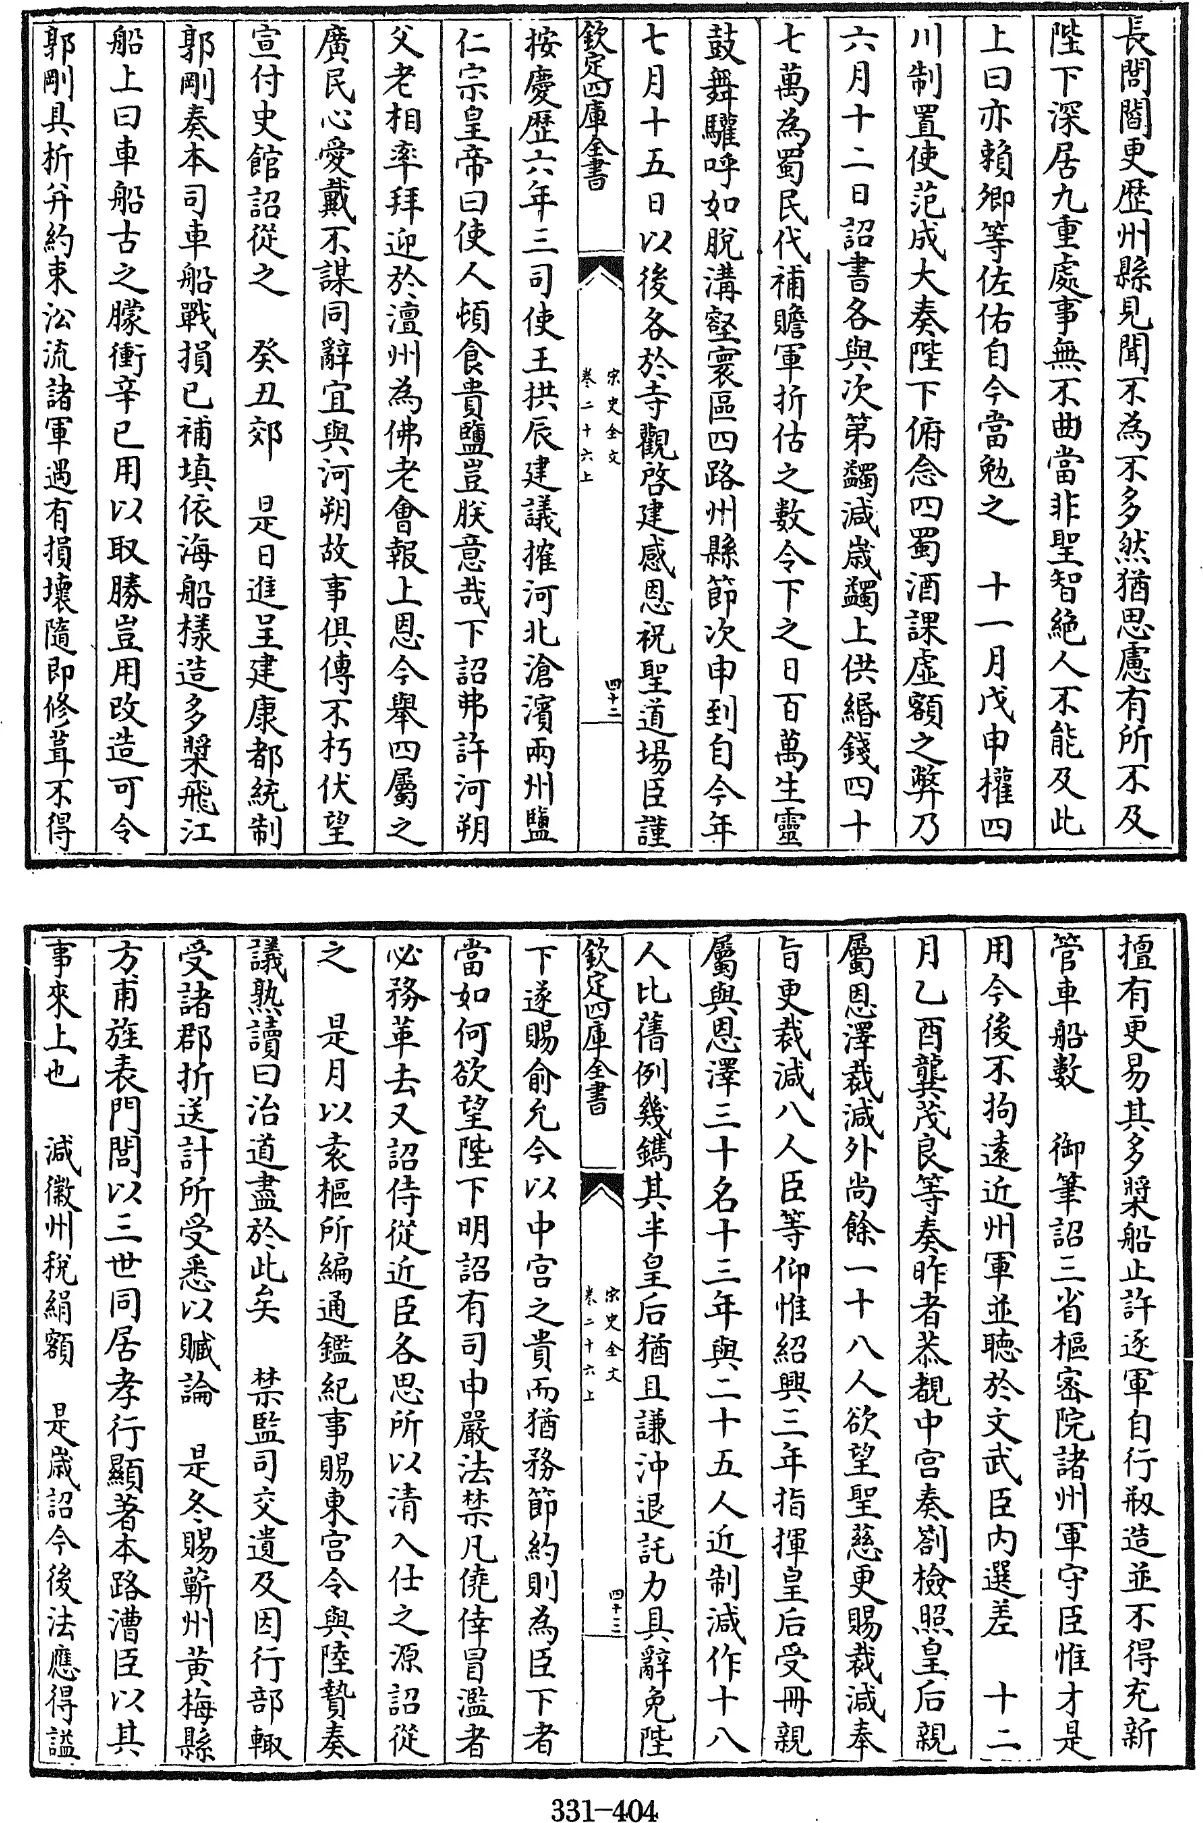 長閭閻更歴州縣見聞不為不多然猶思慮有所不及
陛下深居九重處事無不曲當非聖智絶人不能及此
上曰亦賴卿等佐佑自今當勉之　十一月戊申權四
川制置使范成大奏陛下俯念四蜀酒課虛額之弊乃
六月十二日詔書各與次第蠲減歲蠲上供緡錢四十
七萬為蜀民代補贍軍折估之數令下之日百萬生靈
鼓舞驩呼如脫溝壑寰區四路州縣節次申到自今年
七月十五日以後各於寺觀啓建感恩祝聖道場臣謹
欽定四庫全書
宋史全文
卷二十六上
四十二
按慶歷六年三司使王拱辰建議搉河北滄濱兩州鹽
仁宗皇帝曰使人頓食貴鹽豈朕意哉下詔弗許河朔
父老相率拜迎於澶州為佛老會報上恩今舉四屬之
廣民心愛戴不謀同辭宜與河朔故事俱傳不朽伏望
宣付史館詔從之　癸丑郊　是日進呈建康都統制
郭剛奏本司車船戰損已補填依海船樣造多槳飛江
船上曰車船古之朦衝辛已用以取勝豈用改造可令
郭剛具折并約束㳂流諸軍遇有損壞隨即修葺不得
擅有更易其多槳船止許逐軍自行剏造並不得充新
管車船數　御筆詔三省樞密院諸州軍守臣惟才是
用今後不拘遠近州軍並聽於文武臣内選差　十二
月乙酉龔茂良等奏昨者恭覩中宮奏劄檢照皇后親
屬恩澤裁減外尚餘一十八人欲望聖慈更賜裁減奉
旨更裁減八人臣等仰惟紹興三年指揮皇后受冊親
屬與恩澤三十名十三年與二十五人近制減作十八
人比舊例幾鐫其半皇后猶且謙沖退託力具辭免陛
欽定四庫全書
宋史全文
卷二十六上
四十三
下遂賜俞允今以中宮之貴而猶務節約則為臣下者
當如何欲望陛下明詔有司申嚴法禁凡僥倖冒濫者
必務革去又詔侍從近臣各思所以清入仕之源詔從
之　是月以袁樞所編通鑑紀事賜東宮令與陸贄奏
議熟讀曰治道盡於此矣　禁監司交遺及因行部輙
受諸郡折送計所受悉以贓論　是冬賜蘄州黃梅縣
方甫旌表門閭以三世同居孝行顯著本路漕臣以其
事來上也　減徽州稅絹額　是歲詔今後法應得謚
331-404